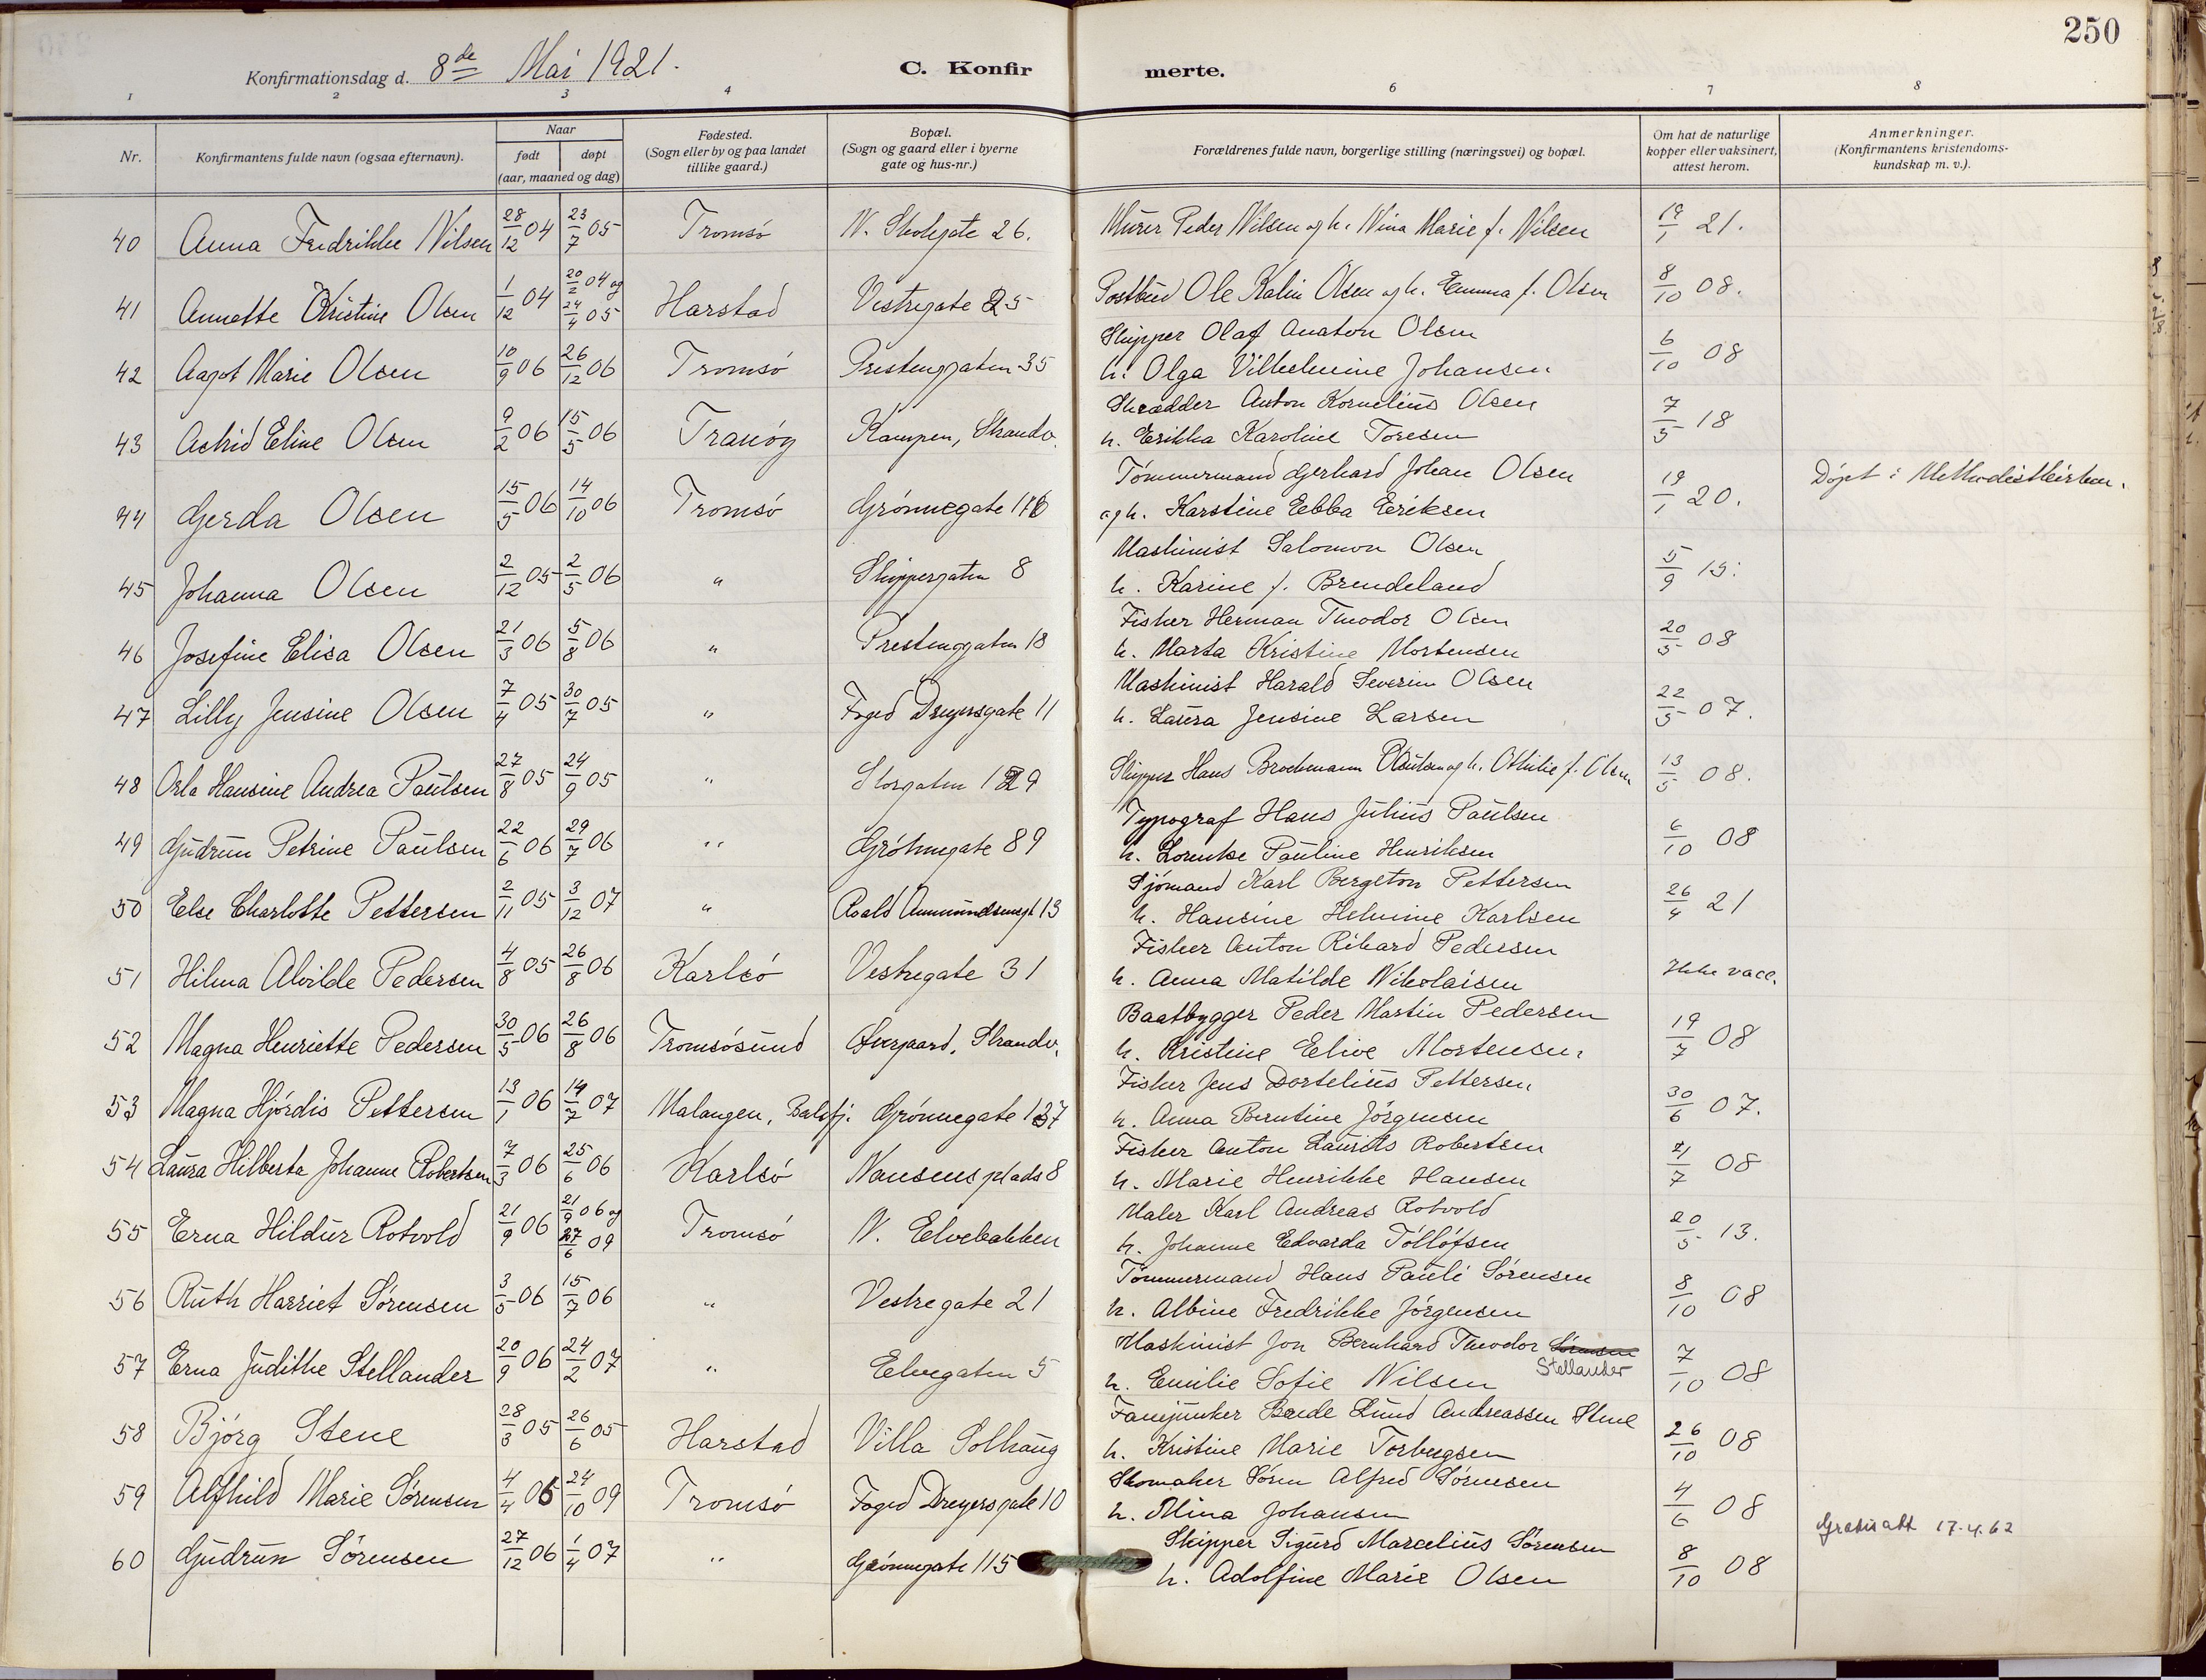 250
Konfirmationsdag d. 8de Mai 1921.
C. Konfirmerte.
1 2 3 4 6 7 8
Nr.
Konfirmantens fulde navn (ogsaa efternavn).
Naar
født døpt
(aar, maaned og dag)
Fødested.
(Sogn eller by og paa landet
tillike gaard.)
Bopæl.
(Sogn og gaard eller i byerne
gate og hus-nr.)
Forældrenes fulde navn, borgerlige stilling (næringsvei) og bopæl.
Om hat de naturlige
kopper eller vaksinert,
attest herom.
Anmerkninger.
(Konfirmantens kristendoms-
kundskap m. v.).
40 Anna Fredrikke Nilsen 28/12 04 23/7 05 Tromsö N. Skolegate 26. Murer Peder Nilsen og h. Nina Marie f. Nilsen 19/1 21.
41 Annette Kristine Olsen 1/12 04 20/2 04 og 24/4 05 Harstad Vestregate 25 Postbud Ole Kalin Olsen og h. Emma f. Olsen 8/10 08.
Skipper Olaf Anaton Olsen
42 Aagot Marie Olsen 10/9 06 26/12 06 Tromsö Prestenggaten 35 h. Olga Vilhelmine Johansen 6/10 08
Skrædder Anton Kornelius Olsen
43 Astrid Eline Olsen 9/2 06 15/5 06 Tranöy Kampen, Strandv. h. Erikka Karoline Toresen 7/5 18
Tömmermand Gerhard Johan Olsen
44 Gerda Olsen 15/5 06 14/10 06 Tromsö Grönnegate 116 og h. Karstine Ebba Eriksen 19/1 20. Döpt i Methodistkirken.
Maskinist Salomon Olsen
45 Johanna Olsen 2/12 05 2/5 06 " Skippergaten 8 h. Karine f. Brendeland 5/9 15.
Fisker Herman Theodor Olsen
46 Josefine Elisa Olsen 21/3 06 5/8 06 " Prestenggaten 18 h. Marta Kristine Mortensen 20/5 08
Maskinist Harald Severin Olsen
47 Lilly Jensine Olsen 7/4 05 30/7 05 " Foged Dreyersgate 11 h. Laura Jensine Larsen 22/5 07.
48 Orla Hansine Andrea Paulsen 27/8 05 24/9 05 " Storgaten 129 Skipper Hans Brockmann Paulsen og h. Othilie f. Olsen 13/5 08.
Typograf Hans Julius Paulsen
49 Gudrun Petrine Paulsen 22/6 06 29/7 06 " Grönnegate 89 h. Lorentse Pauline Henriksen 6/10 08
Sjömand Karl Bergeton Pettersen
50 Else Charlotte Pettersen 2/11 05 3/12 07 " Roald Ammundsensgt 13 h. Hansine Helmine Karlsen 26/4 21
Fisker Anton Rikard Pedersen
51 Hilma Alvilde Pedersen 4/8 05 26/8 06 Karlsö Vestregate 31 h. Anna Matilde Nikolaisen Ikke vacc.
Baatbygger Peder Martin Pedersen
52 Magna Henriette Pedersen 30/5 06 26/8 06 Tromsösund Övergaard, Strandv. h. Kristine Elive Mortensen 19/7 08
Fisker Jens Dortelius Pettersen
53 Magna Hjördis Pettersen 13/1 06 14/7 07 Malangen, Balsfj. Grönnegate 137 h. Anna Berntine Jörgensen 30/6 07.
Fisker Anton Laurits Robertsen
54 Laura Hilberta Johanne Robertsen 7/3 06 25/6 06 Karlsö Nansens plads 8 h. Marie Henrikke Hansen 21/7 08
Maler Karl Andreas Rotvold
55 Erna Hildur Rotvold 21/9 06 21/9 06 og 27/6 09 Tromsö N. Elvebakken h. Johanne Edvarda Tollöfsen 20/5 13.
Tömmermand Hans Pauli Sörensen
56 Ruth Harriet Sörensen 3/5 06 15/7 06 " Vestregate 21 h. Albine Fredrikke Jörgensen 8/10 08
Maskinist Jon Bernhard Theodor Sörensen Stellander
57 Erna Judithe Stellander 20/9 06 24/2 07 " Elvegaten 5 h. Emilie Sofie Nilsen 7/10 08
Fanejunker Bende Lund Andreassen Stene
58 Björg Stene 28/3 05 26/6 05 Harstad Villa Solhaug h. Kristine Marie Torbergsen 26/10 08
Skomaker Sören Alfred Sörensen
59 Alfhild Marie Sörensen 4/4 06 24/10 09 Tromsö Foged Dreyersgate 10 h. Alina Johansen 4/6 08
Skipper Sigurd Marcelius Sörensen Gratisatt 17.4.62
60 Gudrun Sörensen 27/12 06 1/4 07 " Grönnegate 115 h. Adolfine Marie Olsen 8/10 08